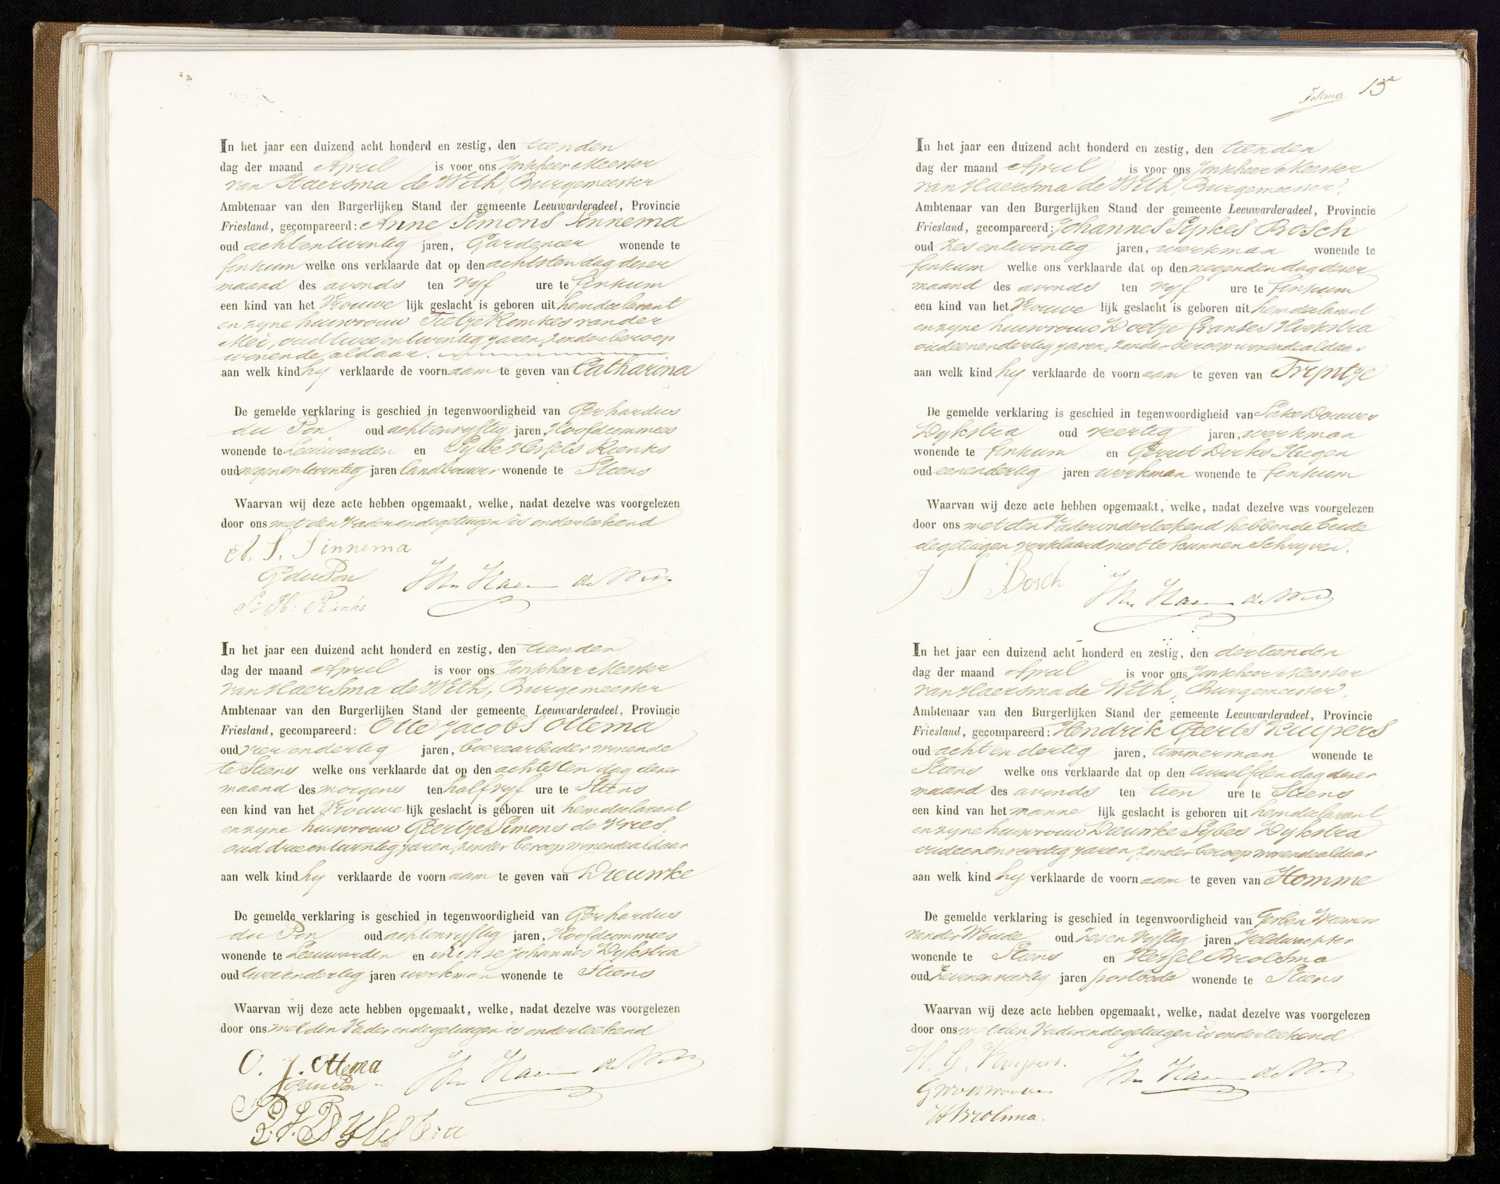 In het jaar een duizend acht honderd en zestig, den tienden
dag der maand April is voor ons Jonkheer Meester
van Haersma de With, Burgemeester
Ambtenaar van den Burgerlijken Stand der gemeente Leeuwarderadeel, Provincie
Friesland, gecompareerd: Anne Simons Sinnema
oud achtentwintig jaren, Gardenier wonende te
Finkum welke ons verklaarde dat op den achtsten dag dezer
maand des avonds ten vijf ure te Finkum
een kind van het Vrouwe lijk geslacht is geboren uit hem declarant
en zijne huisvrouw Tietje Romkes van der
Mei, oud twee en twintig jaren, zonder beroep
wonende aldaar.
aan welk kind hij verklaarde de voornaam te geven van Catharina
De gemelde verklaring is geschied in tegenwoordigheid van Gerhardus
du Pon oud achtenvijftig jaren, Hoofdcommies
wonende te Leeuwarden en Pijtte Hessels Rienks
oud negenentwintig jaren landbouwer wonende te Stiens
Waarvan wij deze acte hebben opgemaakt, welke, nadat dezelve was voorgelezen
door ons met den Vader en de getuigen is onderteekend
A. S. Sinnema
G du Pon
P. H. Rienks
In het jaar een duizend acht honderd en zestig, den tienden
dag der maand April is voor ons Jonkheer Meester
van Haersma de With, Burgemeester
Ambtenaar van den Burgerlijken Stand der gemeente Leeuwarderadeel, Provincie
Friesland, gecompareerd: Otte Jacobs Ottema
oud vier en dertig jaren, boerearbeider wonende
te Stiens welke ons verklaarde dat op den achtsten dag dezer
maand des morgens ten half vijf ure te Stiens
een kind van het Vrouwe lijk geslacht is geboren uit hem declarant
en zijne huisvrouw Geertje Simons de Vries
oud drie en twintig jaren, zonder beroep wonende aldaar
aan welk kind hij verklaarde de voornaam te geven van Dieuwke
De gemelde verklaring is geschied in tegenwoordigheid van Gerhardus
du Pon oud achtenvijftig jaren, Hoofdcommies
wonende te Leeuwarden en Johannes Dijkstra
oud tweeendertig jaren werkman wonende te Stiens
Waarvan wij deze acte hebben opgemaakt, welke, nadat dezelve was voorgelezen
door ons met den Vader en de getuigen is onderteekend
O. J. Ottema
G du Pon
Dijkstra
15
In het jaar een duizend acht honderd en zestig, den tienden
dag der maand April is voor ons Jonkheer Meester
van Haersma de With, Burgemeester
Ambtenaar van den Burgerlijken Stand der gemeente Leeuwarderadeel, Provincie
Friesland, gecompareerd: Johannes Sipkes Bosch
oud zes en twintig jaren, werkman wonende te
Finkum welke ons verklaarde dat op den negenden dag dezer
maand des avonds ten vijf ure te Finkum
een kind van het Vrouwe lijk geslacht is geboren uit hem declarant
en zijne huisvrouw Doetje Franses Hoekstra
oud eenendertig jaren, zonder beroep wonende aldaar
aan welk kind hij verklaarde de voornaam te geven van Trijntje
De gemelde verklaring is geschied in tegenwoordigheid van Sake Douwes
Dijkstra oud veertig jaren, werkman
wonende te Finkum en Gerrit Dirks Haagen
oud eenendertig jaren werkman wonende te Finkum
Waarvan wij deze acte hebben opgemaakt, welke, nadat dezelve was voorgelezen
door ons met den Vader onderteekend hebbende beide
de getuigen verklaard niet te kunnen schrijven.
J S Bosch
In het jaar een duizend acht honderd en zestig, den dertienden
dag der maand April is voor ons Jonkheer Meester
van Haersma de With, Burgemeester
Ambtenaar van den Burgerlijken Stand der gemeente Leeuwarderadeel, Provincie
Friesland, gecompareerd: Hendrik Geerts Kuipers
oud acht en dertig jaren, timmerman wonende te
Stiens welke ons verklaarde dat op den twaalfden dag dezer
maand des avonds ten tien ure te Stiens
een kind van het manne lijk geslacht is geboren uit hem declarant
en zijne huisvrouw Dieuwke Sijbes Dijkstra
oud eenenveertig jaren, zonder beroep wonende aldaar
aan welk kind hij verklaarde de voornaam te geven van Homme
De gemelde verklaring is geschied in tegenwoordigheid van Gerben
van der Woude oud zeven vijftig jaren, Veldwachter
wonende te Stiens en Hessel Brolsma
oud zevenenveertig jaren postbode wonende te Stiens
Waarvan wij deze acte hebben opgemaakt, welke, nadat dezelve was voorgelezen
door ons met den Vader en de getuigen is onderteekend
H. G. Kuipers.
H Brolsma.